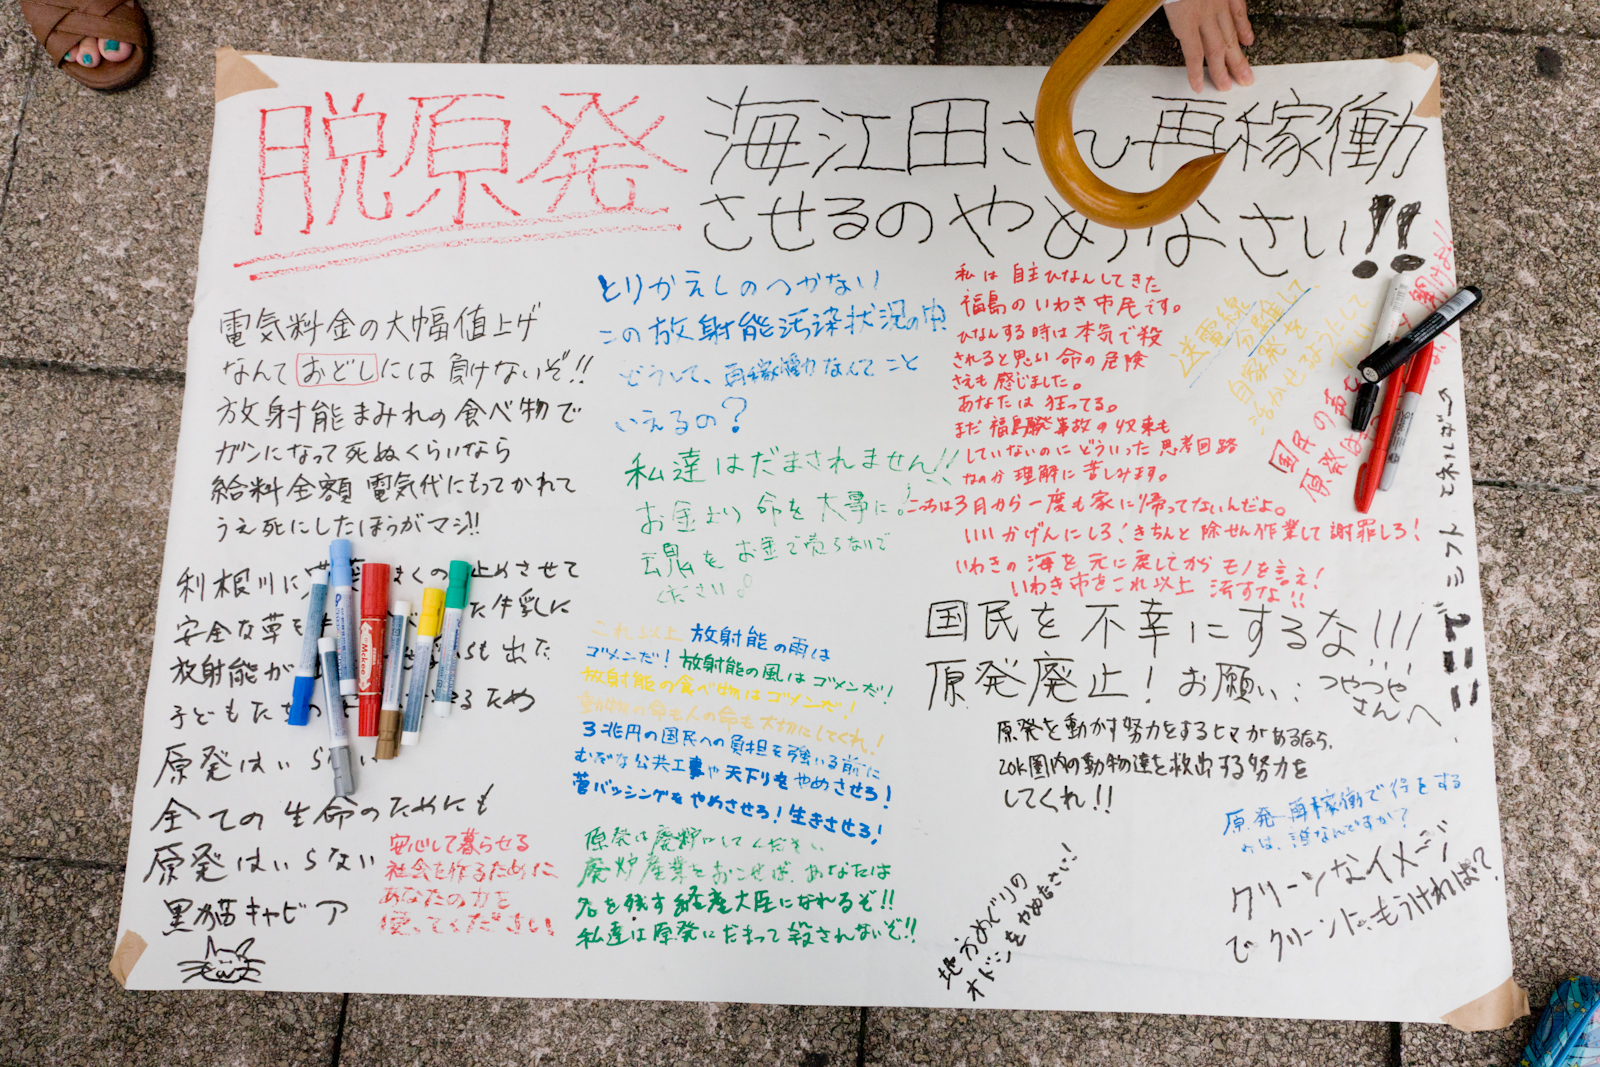 脱原発
海江田さん再稼働
させるのやめなさい!!
電気料金の大幅値上げ
なんておどしには負けないぞ!!
放射能まみれの食べ物で
ガンになって死ぬくらいなら
給料全額電気代にもってかれて
うえ死にしたほうがマシ!!
利根川に まくの 止めさせて
安全な草を た牛乳に
放射能が も出た
子どもたちの るため
原発はいらない
全ての生命のためにも
原発はいらない
黒猫キャビア
安心して暮らせる
社会を作るために
あなたの力を
使ってください
とりかえしのつかない
この放射能汚染状況の中
どうして、再稼働なんてこと
いえるの?
私達はだまされません!!
お金より命を大事に。
魂をお金で売らないで
ください
これ以上放射能の雨は
ゴメンだ!放射能の風はゴメンだ!
放射能の食べ物はゴメンだ!
動物の命も人の命も大切にしてくれ!
3兆円の国民への負担を強いる前に
むだな公共工事や天下りをやめさせろ!
菅バッシングをやめさせろ!生きさせろ!
原発は廃炉にしてください
廃炉産業をおこせば、あなたは
名を残す経産大臣になれるぞ!!
私達は原発にだまって殺されないぞ!!
私は自主ひなんしてきた
福島のいわき市民です。
ひなんする時は本気で殺
されると思い命の危険
さえも感じました。
あなたは狂ってる。
まだ福島発事故の収束も
していないのにどういった思考回路
なのか理解に苦しみます。
こっちは3月から一度も家に帰ってないんだよ。
いいかげんにしろ!きちんと除せん作業して謝罪しろ!
いわきの海を元に戻してからモノを言え!
いわき市をこれ以上汚すな!!
送電線
分離して、
自家発を
活かせるようにして
国民の声を
原発は
国民を不幸にするな!!!
原発廃止!お願い:つやつや
さんへ
原発を動かす努力をするヒマがあるなら、
20k圏内の動物達を救出する努力を
してくれ!!
エネルギー
シフト
原発再稼働で得をする
のは、誰なんですか?
クリーンなイメージ
でクリーンに。もうければ?
地方めぐりの
オドシをやめなさい!
Mckee